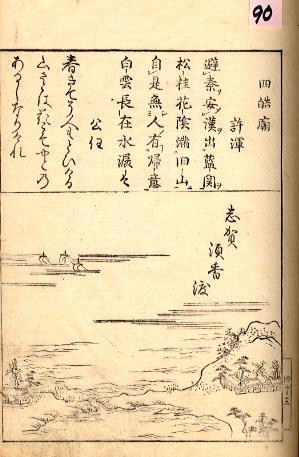 90
四皓廟
許渾
避秦安漢出藍関
松桂花陰満旧山
自是無人有帰意
白雲長在水潺々
公任
春きてそ人もとひける
山さとは花こそやとの
あるしなりけれ
志賀
須香渡